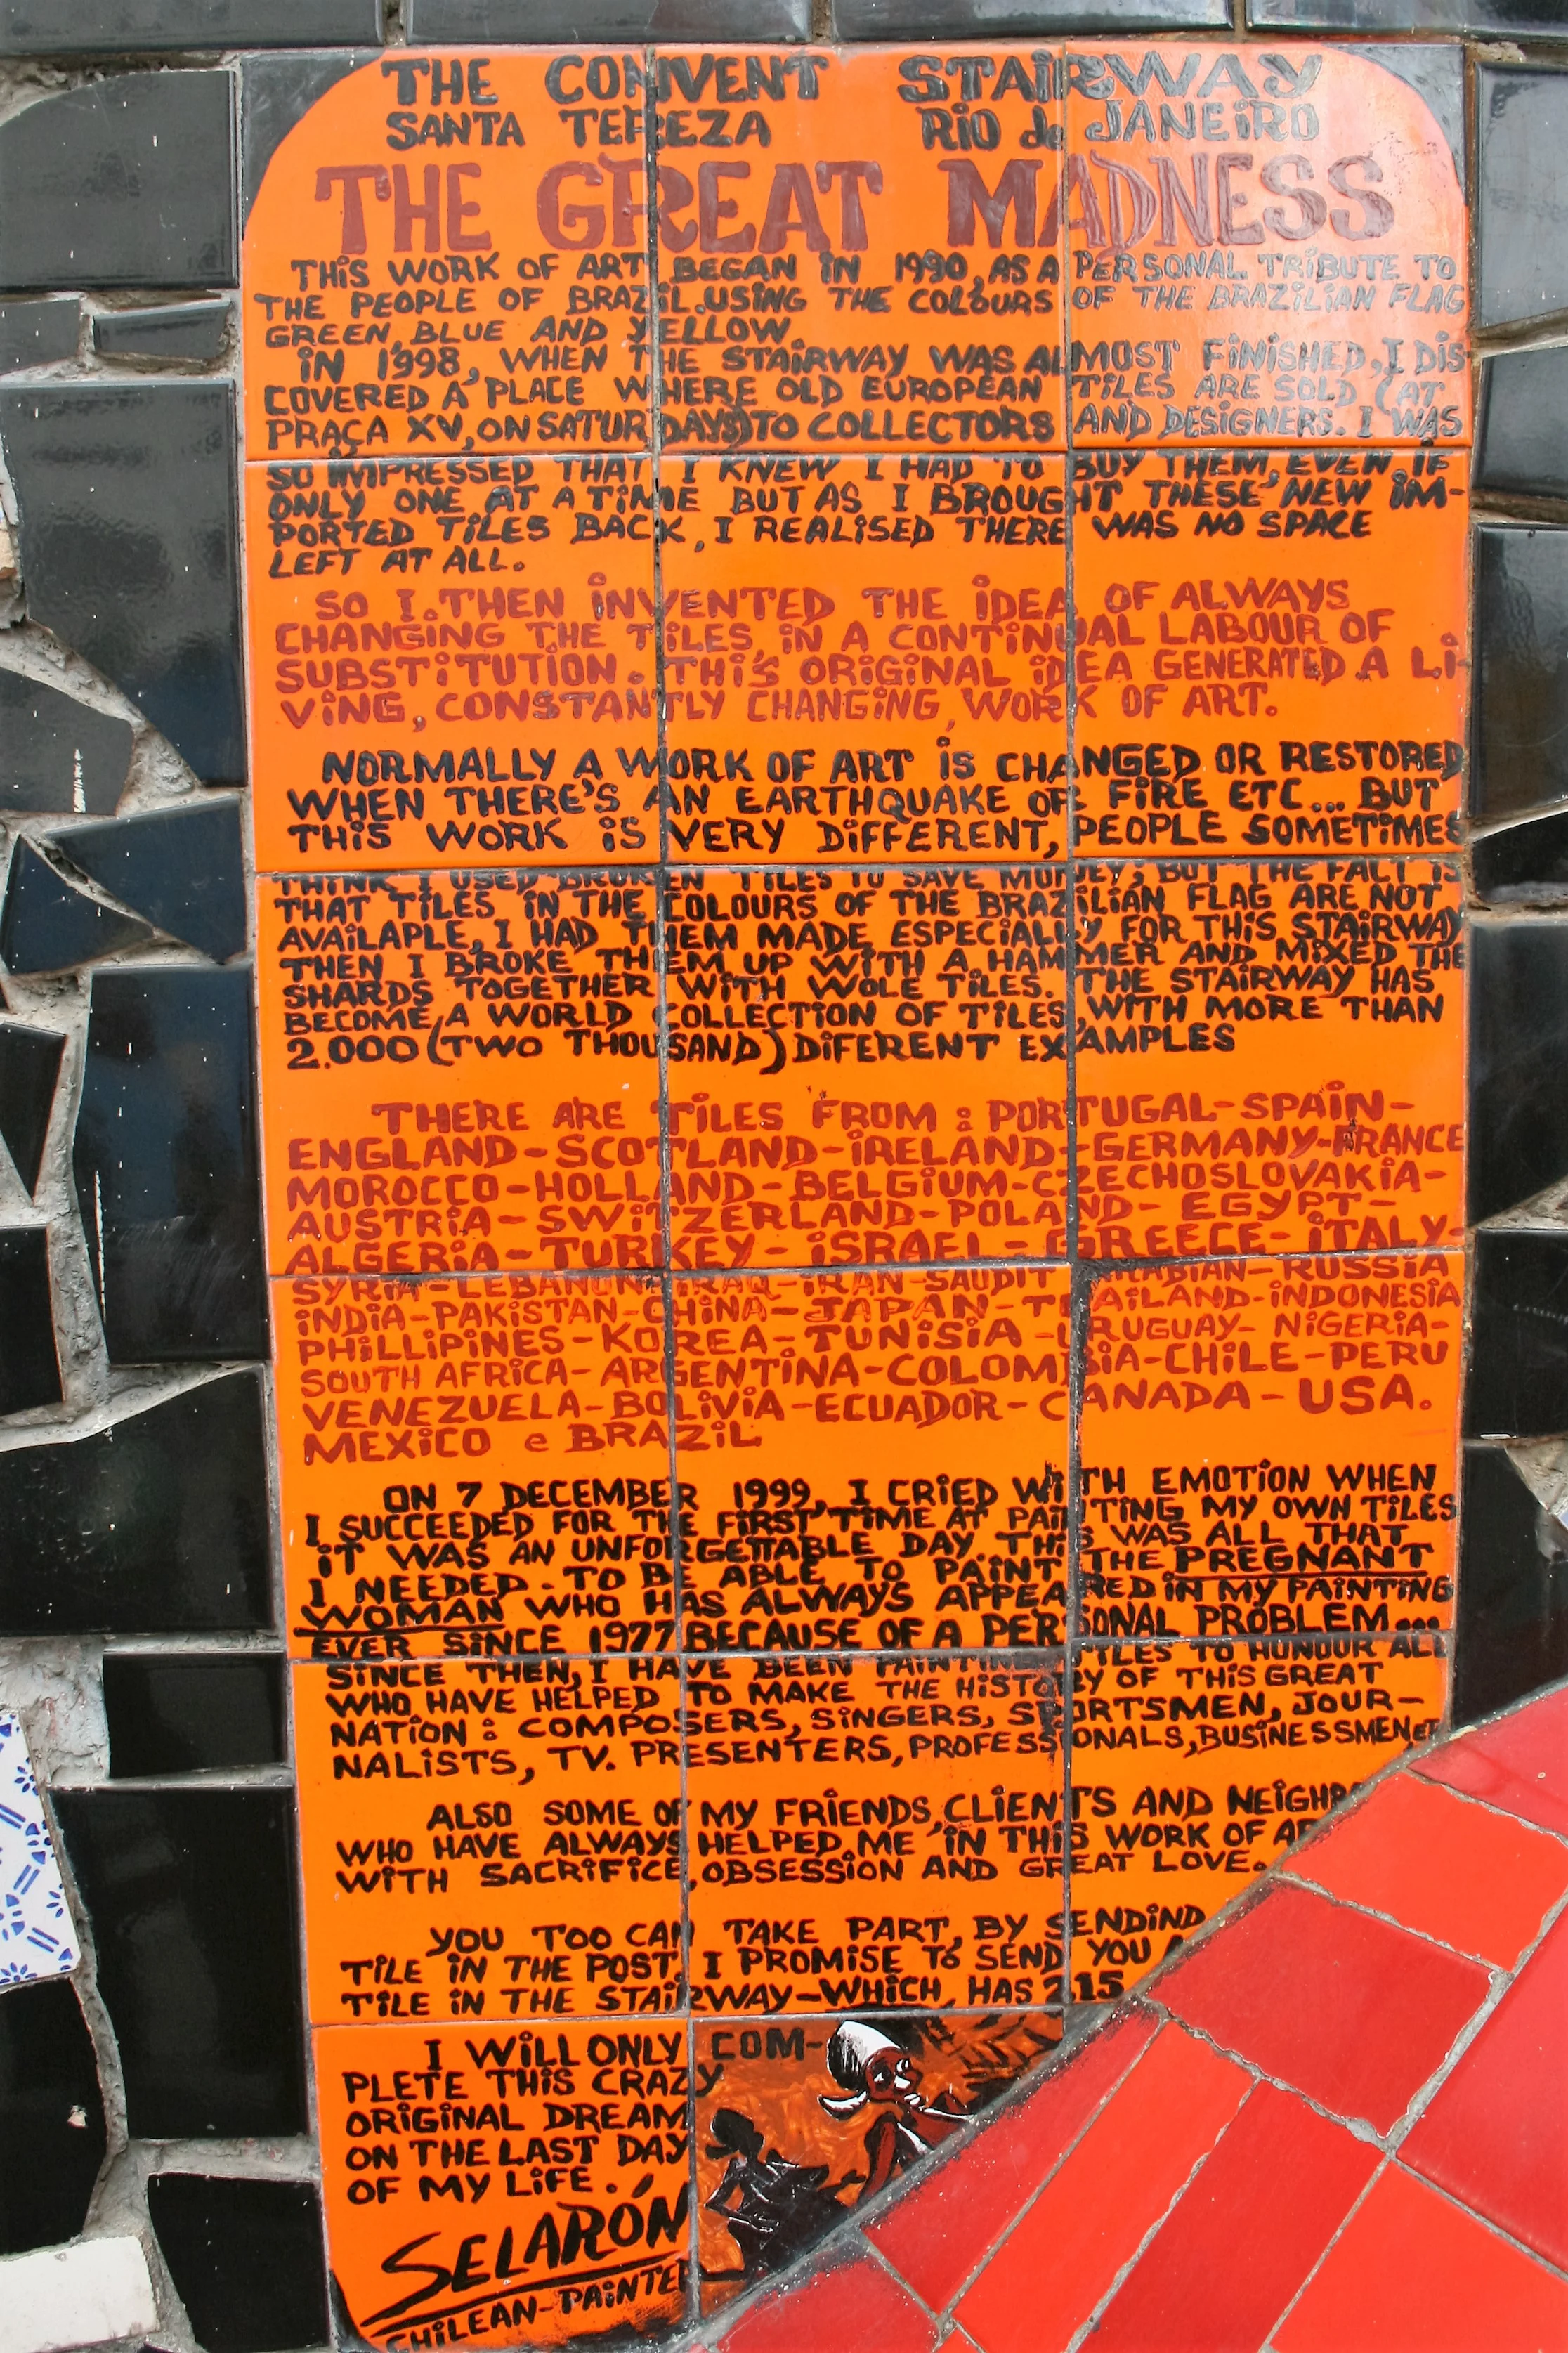 THE CONVENT STAiRWAY
SANTA TEREZA RiO de JANEiRO
THE GREAT MADNESS
THiS WORK OF ART BEGAN iN 1990, AS A PERSONAL TRiBUTE TO
THE PEOPLE OF BRAZiL.USiNG THE COLOURS OF THE BRAZiLiAN FLAG
GREEN, BLUE AND YELLOW.
iN 1998, WHEN THE STAiRWAY WAS ALMOST FiNiSHED, I DiS
COVERED A PLACE WHERE OLD EUROPEAN TiLES ARE SOLD (AT
PRAÇA XV, ON SATURDAYS) TO COLLECTORS AND DESiGNERS. I WAS
SO iMPRESSED THAT I KNEW I HAD TO BUY THEM, EVEN iF
ONLY ONE AT A TiME BUT AS I BROUGHT THESE NEW iM-
PORTED TiLES BACK, I REALiSED THERE WAS NO SPACE
LEFT AT ALL.
SO I.THEN iNVENTED THE iDEA OF ALWAYS
CHANGiNG THE TiLES, iN A CONTiNUAL LABOUR OF
SUBSTiTUTiON. THiS ORiGiNAL iDEA GENERATED A Li-
ViNG, CONSTANTLY CHANGiNG, WORK OF ART.
NORMALLY A WORK OF ART iS CHANGED OR RESTORED
WHEN THERE'S AN EARTHQUAKE OR FiRE ETC... BUT
THiS WORK iS VERY DiFFERENT, PEOPLE SOMETiMES
THiNK I USED BROKEN TiLES TO SAVE MONEY, BUT THE FACT iS
THAT TiLES iN THE COLOURS OF THE BRAZiLiAN FLAG ARE NOT
AVAiLAPLE, I HAD THEM MADE ESPECiALLY FOR THiS STAiRWAY
THEN I BROKE THEM UP WiTH A HAMMER AND MiXED THE
SHARDS TOGETHER WiTH WOLE TiLES. THE STAiRWAY HAS
BECOME A WORLD COLLECTiON OF TiLES, WiTH MORE THAN
2.000 (TWO THOUSAND) DiFERENT EXAMPLES
THERE ARE TiLES FROM : PORTUGAL-SPAiN-
ENGLAND-SCOTLAND-iRELAND-GERMANY-FRANCE
MOROCCO-HOLLAND-BELGiUM-CZECHOSLOVAKiA-
AUSTRiA-SWiTZERLAND-POLAND-EGYPT-
ALGERiA-TURKEY-iSRAEL-GREECE-iTALY-
SYRiA-LEBANON-iRAQ-iRAN-SAUDiT ARABiAN-RUSSiA
iNDiA-PAKiSTAN-CHiNA-JAPAN-THAiLAND-iNDONESiA
PHiLLiPiNES-KOREA-TUNiSiA-URUGUAY-NiGERiA-
SOUTH AFRiCA-ARGENTiNA-COLOMBiA-CHiLE-PERU
VENEZUELA-BOLiViA-ECUADOR-CANADA-USA.
MEXiCO e BRAZiL
ON 7 DECEMBER 1999, I CRiED WiTH EMOTiON WHEN
I SUCCEEDED FOR THE FiRST TiME AT PAiNTiNG MY OWN TiLES
iT WAS AN UNFORGETTABLE DAY THiS WAS ALL THAT
I NEEDED. TO BE ABLE TO PAiNT THE PREGNANT
WOMAN WHO HAS ALWAYS APPEARED iN MY PAiNTiNG
EVER SiNCE 1977 BECAUSE OF A PERSONAL PROBLEM...
SiNCE THEN, I HAVE BEEN PAiNTiNG TiLES TO HONOUR ALL
WHO HAVE HELPED TO MAKE THE HiSTORY OF THiS GREAT
NATiON : COMPOSERS, SiNGERS, SPORTSMEN, JOUR-
NALiSTS, TV. PRESENTERS, PROFESSiONALS, BUSiNESSMEN
ALSO SOME OF MY FRiENDS, CLiENTS AND
WHO HAVE ALWAYS HELPED ME iN THiS WORK OF
WiTH SACRiFiCE, OBSESSiON AND GREAT LOVE.
YOU TOO CAN TAKE PART, BY SENDiND
TiLE iN THE POST. I PROMiSE TO SEND YOU
TiLE iN THE STAiRWAY-WHiCH HAS 215
I WiLL ONLY COM-
PLETE THiS CRAZY
ORiGiNAL DREAM
ON THE LAST DAY
OF MY LiFE.
SELARÓN
CHiLEAN-PAiNTER